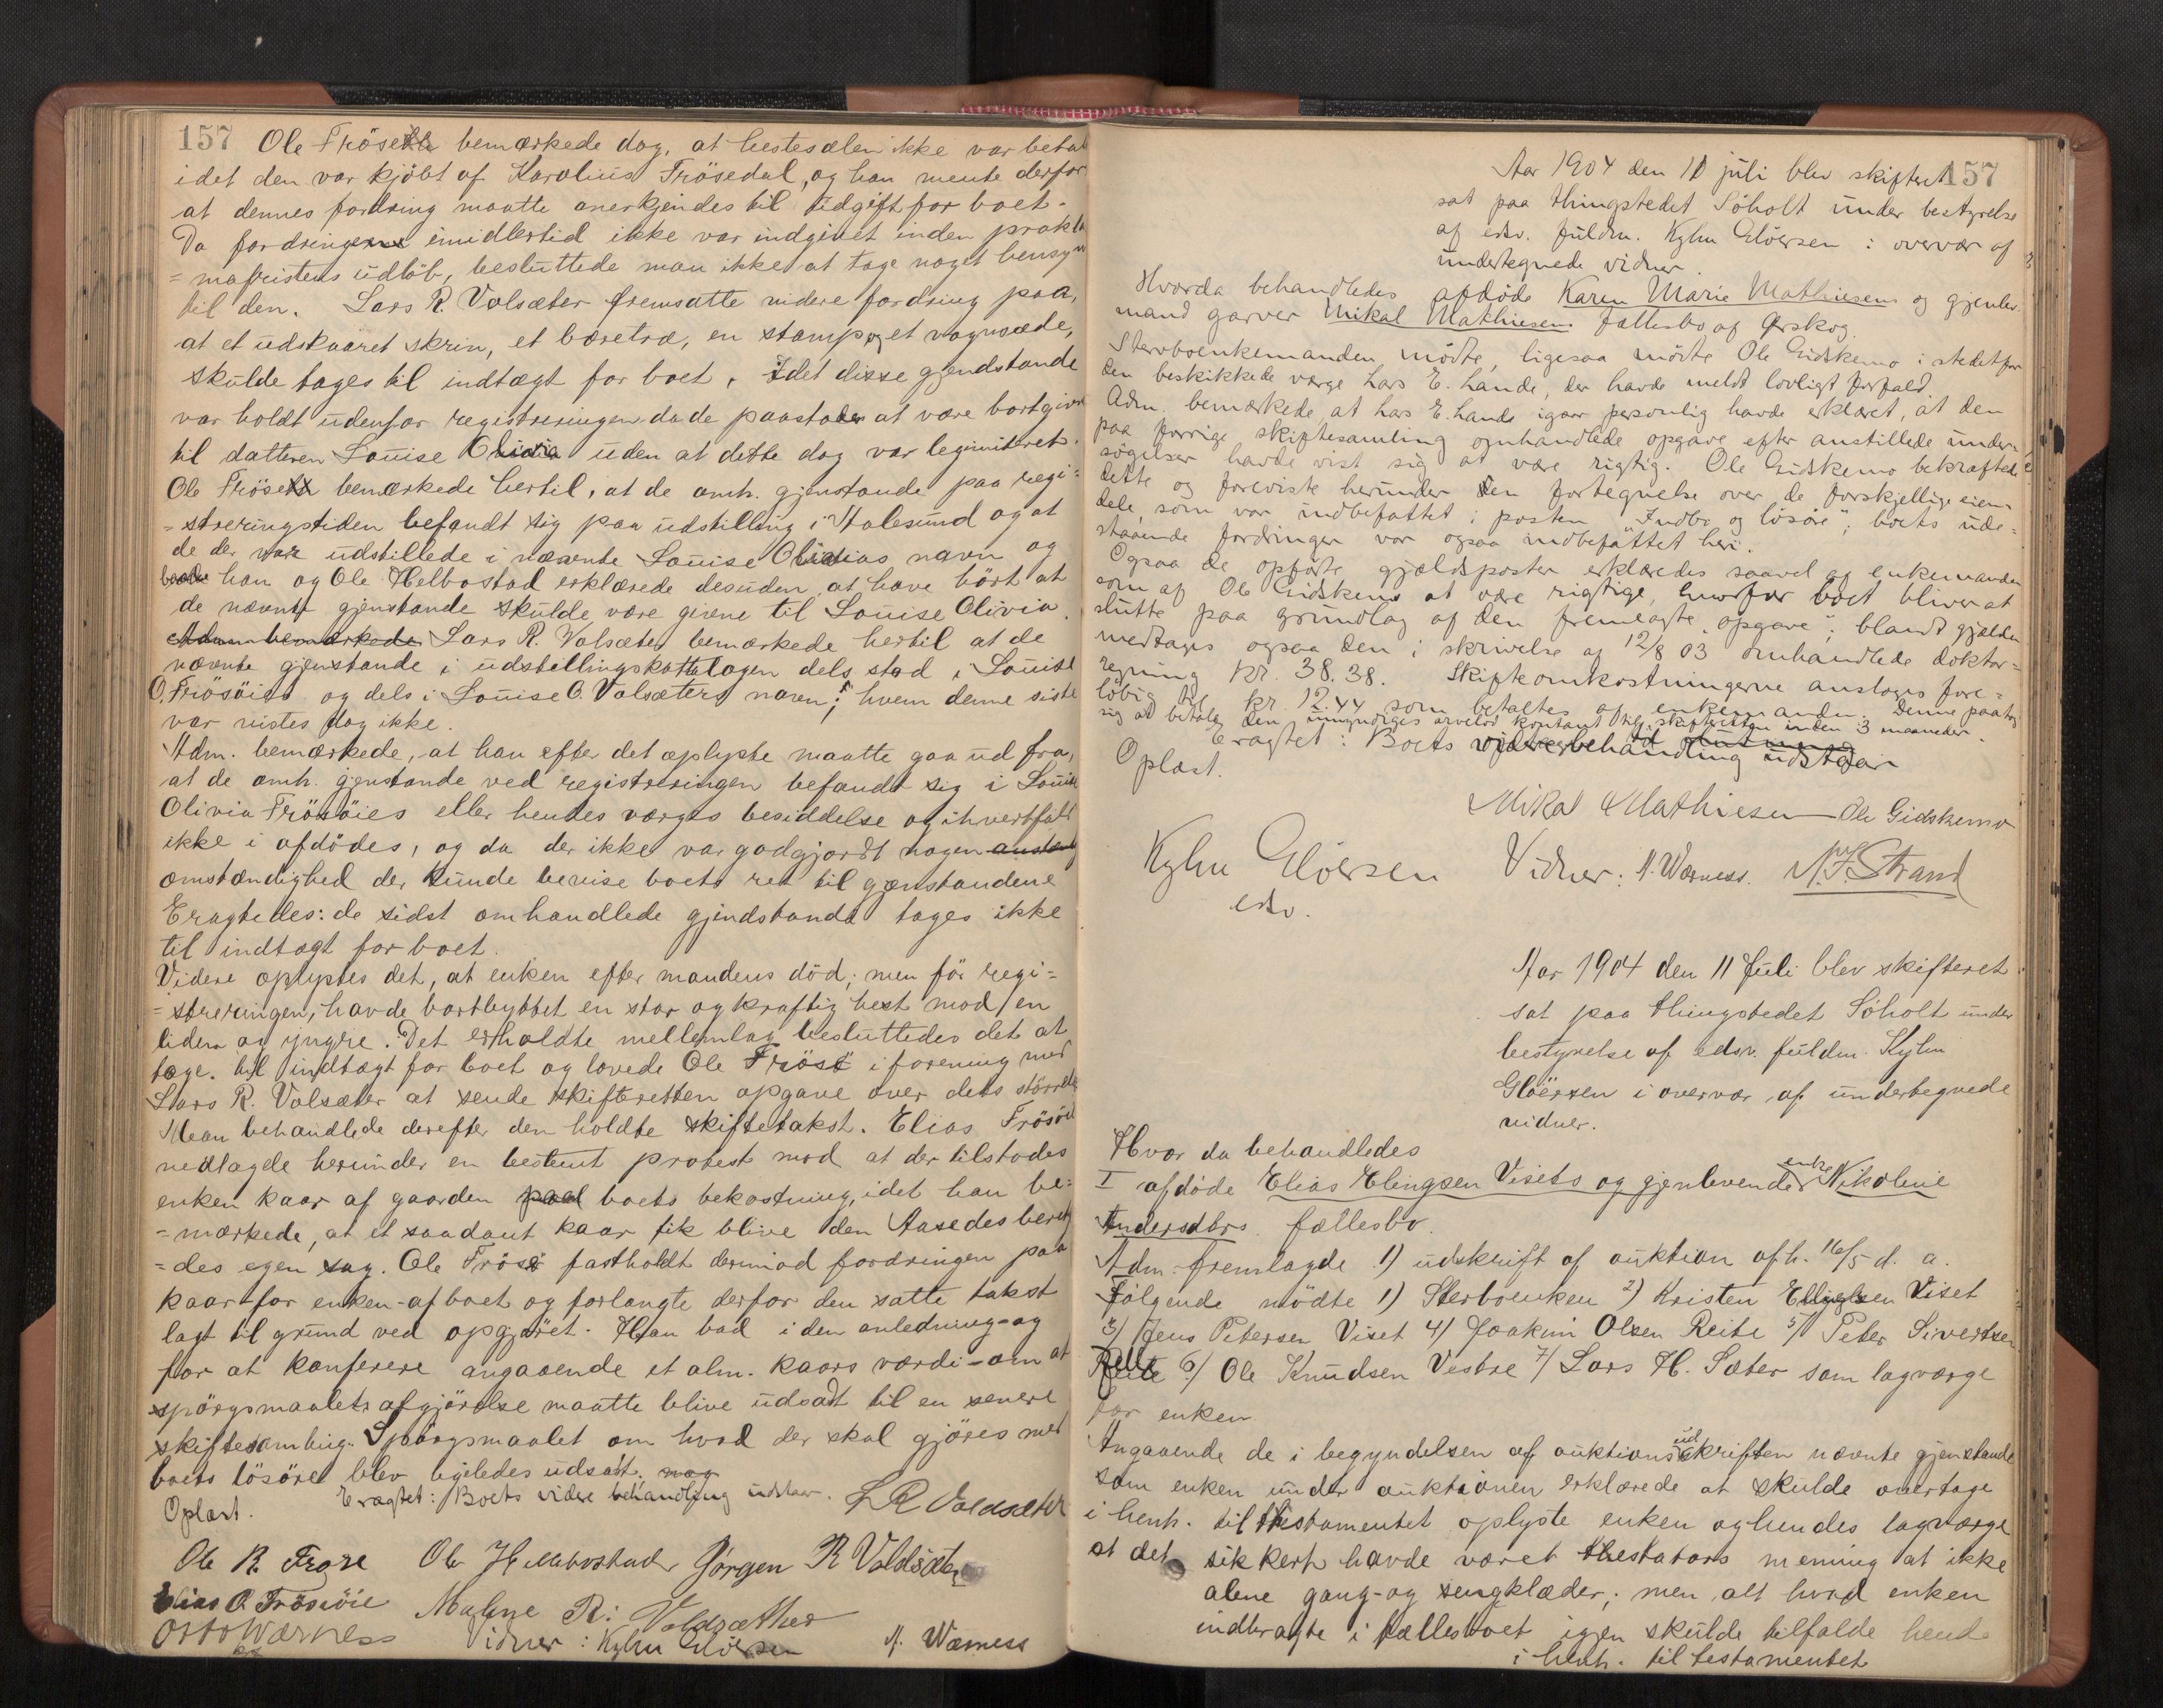 157 Ole Fröse bemærkede dog, at hestesælen ikke var betal
idet den var kjöbt af Karolius Frösedal, og han mente derfor
at dennes fordring maatte anerkjendes til udgift for boet.
Da fordringerne imidlertid ikke var indgivet inden prokla
= mafristens udlöb, besluttede man ikke at tage noget hensyn
til den. Lars R. Valsæter fremsatte videre fordring paa,
at et udskaaret skrin, et bæretræ, en stamp og et vognsæde,
skulde tages til indtægt for boet, idet disse gjendstande
var holdt udenfor registreringen da de paastodes at være bortgivne
til datteren Louise Olivia uden at dette dog var legimiteret.
Ole Fröse bemærkede hertil, at de omh. gjenstande paa regi=
= streringstiden befandt sig paa udstilling i Aalesund og at
de der var udstillede i nævnte Louise Olivias navn og
baade han og Ole Helbostad erklærede desuden at have hört at
de nævnte gjenstande skulde være givne til Louise Olivia.
Adm bemærkede Lars R. Valsæter bemærkede hertil at de
nævnte gjenstande i udstillingskattalogen dels stod i Louise
O. Frösöies og dels i Louise O. Valsæters navn; hvem denne siste
var vistes dog ikke.
Adm. bemærkede, at han efter det oplyste maatte gaa ud fra,
at de omh. gjenstande ved registreringen befandt sig i Louise
Olivia Frösöies eller hendes værges besiddelse og ihvertfald
ikke i afdödes, og da der ikke var godgjordt nogen
omstændighed der kunde bevise boets ret til gjenstandene
Eragtedes: de sidst omhandlede gjindstande tages ikke
til indtægt for boet.
Videre oplystes det, at enken efter mandens död, men för regi=
= streringen, havde bortbyttet en stor og kraftig hest mod en
liden og yngre. Det erholdte mellemlag besluttedes det at
tage til indtægt for boet og lovede Ole Fröse i forening med
Lars R. Valsæter at sende skifteretten opgave over dets störrelse
Man behandlede derefter den holdte skiftetakst. Elias Frösöie
nedlagde herunder en bestemt protest mod at der tilstodes
enken kaar af gaarden paa boets bekostning, idet han be=
= mærkede, at et saadant kaar fik blive den Aasedesberet
= des egen sag. Ole Fröse fastholdt derimod fordringen paa
kaar for enken af boet og forlangte derfor den satte takst
lagt til grund ved opgjöret. Han bad i den anledning - og
for at konferere angaaende et alm. kaars værdi - om at
spörgsmaalets afgjörelse maatte blive udsat til en senere
skiftesamling. Spörgsmaalet om hvad der skal gjöres med
boets lösöre blev ligeledes udsat.
Eragtet: Boets videre behandling udstaar.
Oplæst.
L R Valdsæter
Ole R. Frøse Ole Hellebostad Jørgen R Valdsæter
Elias O. Frösöie Malene R: Valdsæther
Otto Wærness Vidner: Kyhn Glöersen N. Wærness
157
Aar 1904 den 11 juli blev skifteret
sat paa thingstedet Söholt under bestyrelse
af edsv. fuldm. Kyhn Glöersen i overvær af
undertegnede vidner.
Hvorda behandledes afdöde Karen Marie Mathiesens og gjenlev.
mand garver Mikal Mathiesens fællesbo af Ørskog.
Stervboenkemanden mödte, ligesaa mödte Ole Gidskemo i stedet for
den beskikkede værge Lars E. Lande, der havde meldt lovligt forfald.
Adm. bemærkede, at Lars E. Lande igaar personlig havde erklæret, at den
paa forrige skiftesamling omhandlede opgave efter anstillede under=
sögelser havde vist sig at være rigtig. Ole Gidskemo bekræftede
dette og foreviste herunder den fortegnelse over de forskjellige eien=
dele, som var indbefattet i posten "Indbo og lösöre"; boets ude=
staaende fordringer var ogsaa indbefattet heri.
Ogsaa de opförte gjældsposter erklæredes saavel af enkemanden
som af Ole Gidskemo at være rigtige, hvorfor boet bliver at
slutte paa grundlag af den fremlagte "opgave"; blandt gjælden
medtages ogsaa den i skrivelse af 12/8 03 omhandlede doktor=
regning kr. 38.38. Skifteomkostningerne ansloges fore=
löbig til kr. 12.44 som betaltes af enkemanden. Denne paatog
sig at betale den umyndiges arvelod kontant til skifteretten inden 3 maaneder.
Eragtet: Boets videre behandling udstaar
Oplæst.
Mikal Mathiesen Ole Gidskemo
Kyhn Glöersen Vidner: N. Wærness. N. F. Strand
edsv.
Aar 1904 den 11 Juli blev skifteret
sat paa thingstedet Söholt under
bestyrelse af edsv. fuldm. Kyhn
Glöersen i overvær af undertegnede
vidner.
Hvor da behandledes
I afdöde Elias Elingsen Visets og gjenlevende enke Nikoline
Andersdtrs fællesbo.
Adm. fremlagde 1) udskrift af auktion afh. 16/5 d. a.
Fölgende mödte 1) Sterboenken 2) Kristen Ellingsen Viset
3) Jens Petersen Viset 4) Joakim Olsen Reite 5) Peter Sivertsen
Reite 6) Ole Knudsen Vestre 7) Lars H. Sæter som lagværge
for enken
Angaaende de i begyndelsen af auktionsudskriften nævnte gjenstande
som enken under auktionen erklærede at skulde overtage
i henh. til thestamentet oplyste enken og hendes lagværge
at det sikkert havde været thestators mening at ikke
alene gang- og sengklæder; men alt hvad enken
indbragte i fællesboet igjen skulde tilfalde hende
i henh. til testamentet